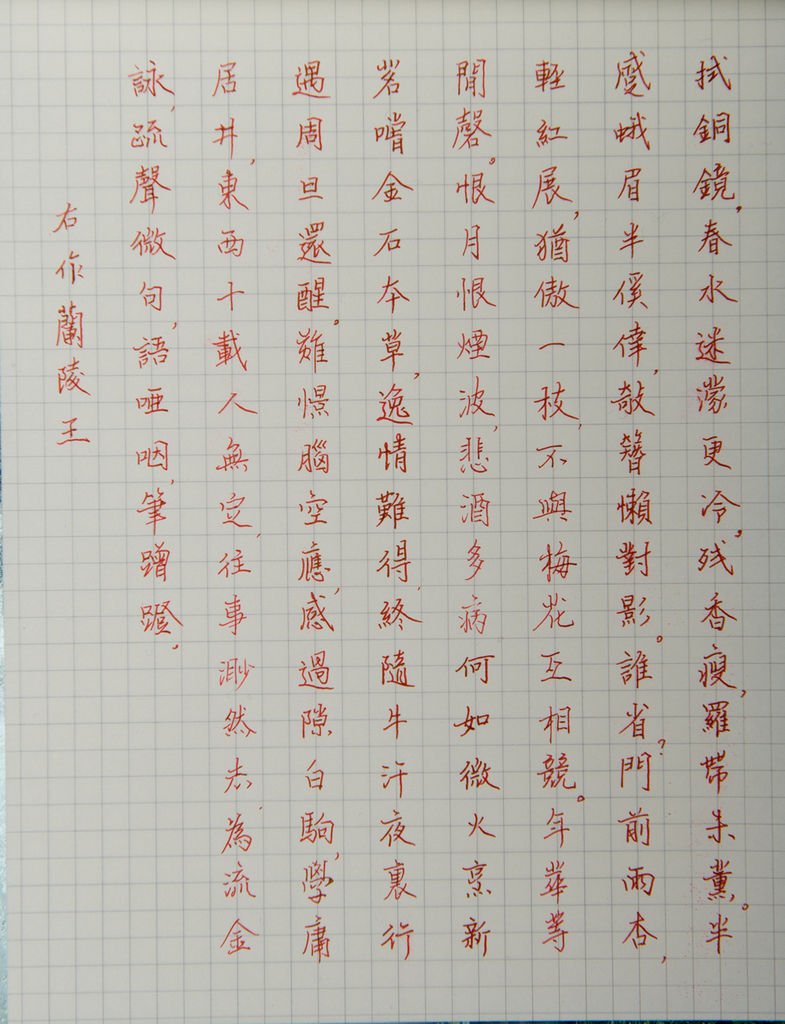 拭銅鏡。春水迷濛更冷。残香瘦,羅帶未薰。半
蹙蛾眉半傒倖,敧簪懶對影。誰省?門前雨杏,
輕紅展,猶傲一枝,不與梅花互相競。年華等
閒磬。恨月恨煙波,悲酒多病何如微火烹新
茗嚐金石本草,逸情難得,終隨牛汗夜裏行
遇周旦還醒。雖憬腦空應,感過隙白駒,學庸
居井,東西十載人無定,往事渺然去,為流金
詠,疏聲微句,語啞咽,筆蹭蹬。
右作蘭陵王